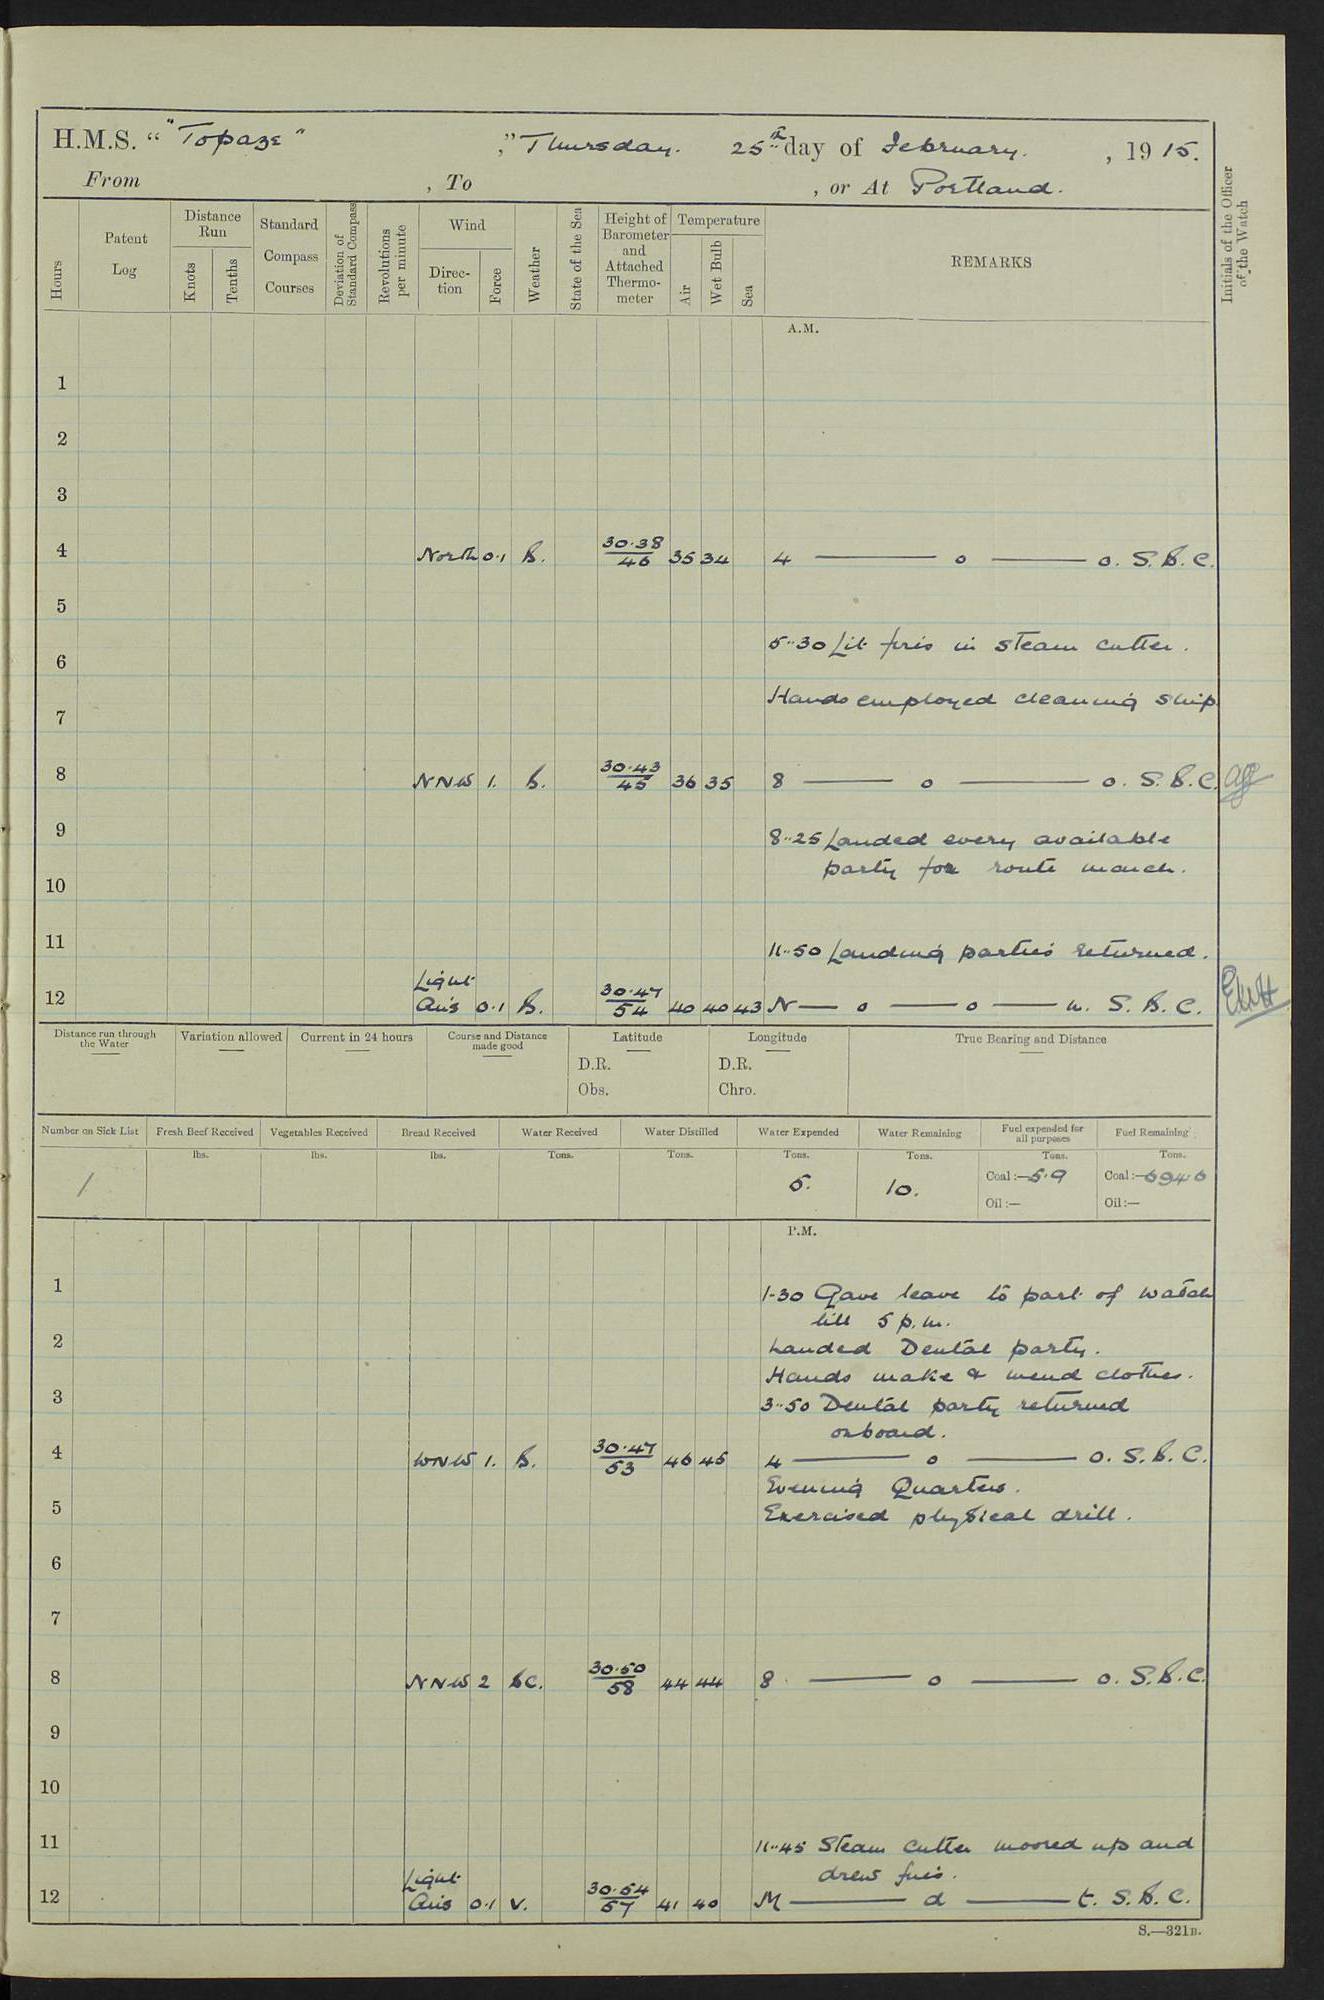 H.M.S. “ "Topaze" ,” Thursday. 25th day of February. , 1915.
From , To , or At Portland.
Hours
Patent Log
Distance Run
Knots
Tenths
Standard Compass Courses
Deviation of Standard Compass
Revolutions per minute
Wind
Direc-tion
Force
Weather
State of the Sea
Height of Barometer and Attached Thermo-meter
Temperature
Air
Wet Bulb
Sea
REMARKS
Initials of the Officer of the Watch
A.M.
1
2
3
4 North 0.1 B. 30.38/46 35 34 4 — o — o. S.B.C.
5
5..30 Lit fires in steam cutter.
6
Hands employed cleaning ship
7
8 NNW 1. B. 30.43/45 36 35 8 — o — o. S.B.C.
9 8..25 Landed every available
party for route march.
10
11 11..50 Landing parties returned.
12 Light Airs 0.1 B. 30.47/54 40 40 43 N — o — o — n. S.B.C.
Distance run through the Water
Variation allowed
Current in 24 hours
Course and Distance made good
Latitude
D.R.
Obs.
Longitude
D.R.
Chro.
True Bearing and Distance
Number on Sick List
Fresh Beef Received
Vegetables Received
Bread Received
Water Received
Water Distilled
Water Expended
Water Remaining
Fuel expended for all purposes
Fuel Remaining
lbs. lbs. lbs. Tons. Tons. Tons. Tons. Tons. Tons.
1 5. 10. Coal:—5.9 Coal:—
Oil:— Oil:—
P.M.
1 1-30 Gave leave to part of watch
till 5 p.m.
2 Landed Dental party.
Hands make & mend clothes.
3 3..50 Dental party returned
onboard.
4 WNW 1. B. 30.47/53 46 45 4 — o — o. S.B.C.
Evening Quarters.
5 Exercised physical drill.
6
7
8 NNW 2 BC. 30.50/58 44 44 8 — o — o. S.B.C.
9
10
11 11..45 Steam cutter moored up and
drew fires.
12 Light Airs 0.1 V. 30.54/57 41 40 M — d — t. S.B.C.
S.—321B.